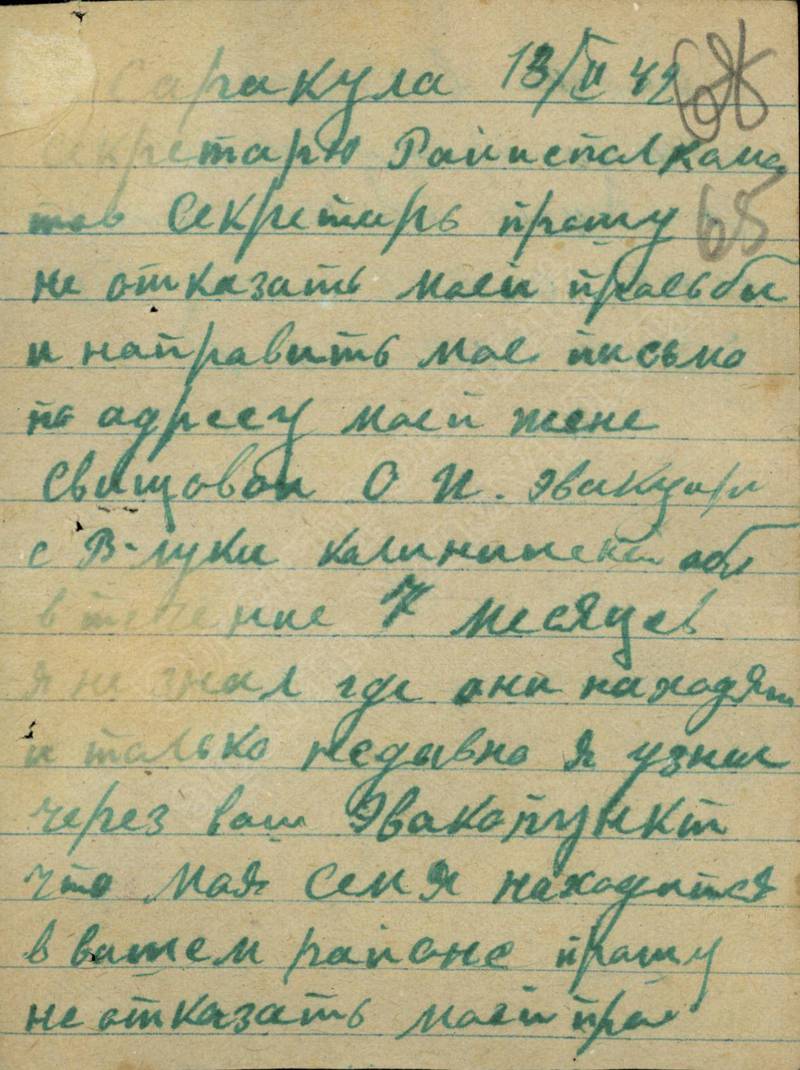 Саракула 13/II 42
68
Секретарю Райисполкома
тов Секретарь прошу
65
не отказать моей прозьбы
и направить мое письмо
по адресу моей жене
Свищовой О И. эвакуир
с В-Луки Калининской обл
в течение 7 месяцев
я не знал где они находятся
и только недавно я узнал
через ваш Эвакопункт
что моя семя находится
в вашем районе прошу
не отказать моей про